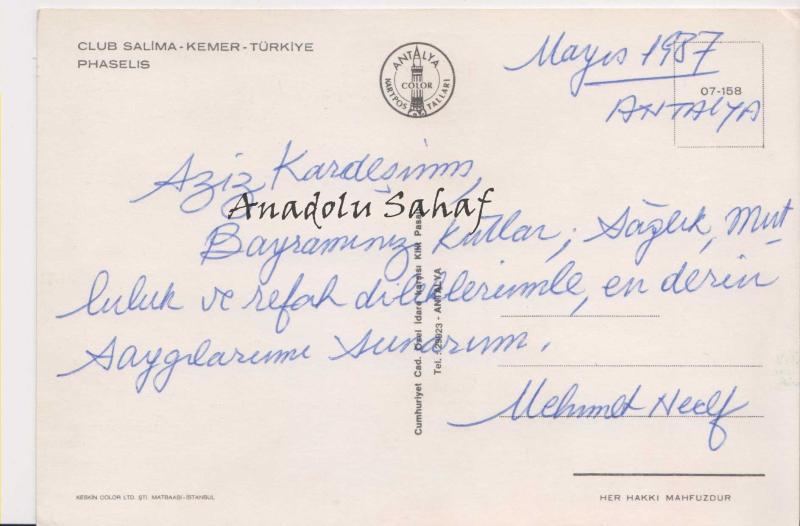 CLUB SALİMA - KEMER - TÜRKİYE
PHASELIS
ANTALYA
COLOR
KARTPOSTALLARI
Mayıs 1987
07-158
ANTALYA
Aziz Kardeşimiz,
Anadolu Sahaf
Bayramınız Kutlar; Sağlık, Mut
luluk ve refah dileklerimle, en derin
saygılarımı sunarım.
Mehmet
Cumhuriyet Cad. Özel İdare karşısı Kilit Pasajı
Tel. : 29923 - ANTALYA
KESKİN COLOR LTD. ŞTİ. MATBAASI-İSTANBUL
HER HAKKI MAHFUZDUR